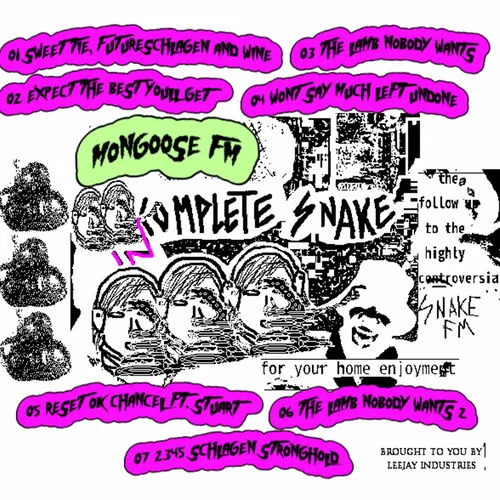 01 SWEET TIE, FUTURESCHLAGEN AND WINE
03 THE LAMB NOBODY WANTS
02 EXPECT THE BEST YOULL GET
04 WONT SAY MUCH LEFT UNDONE
MONGOOSE FM
KOMPLETE SNAKE
the
follow up
to the
highly
controversia
SNAKE
FM
for your home enjoyment
05 RESET OK CHANCEL FT. STUART
06 THE LAMB NOBODY WANTS 2
07 2345 SCHLAGEN STRONGHOLD
BROUGHT TO YOU BY
LEEJAY INDUSTRIES